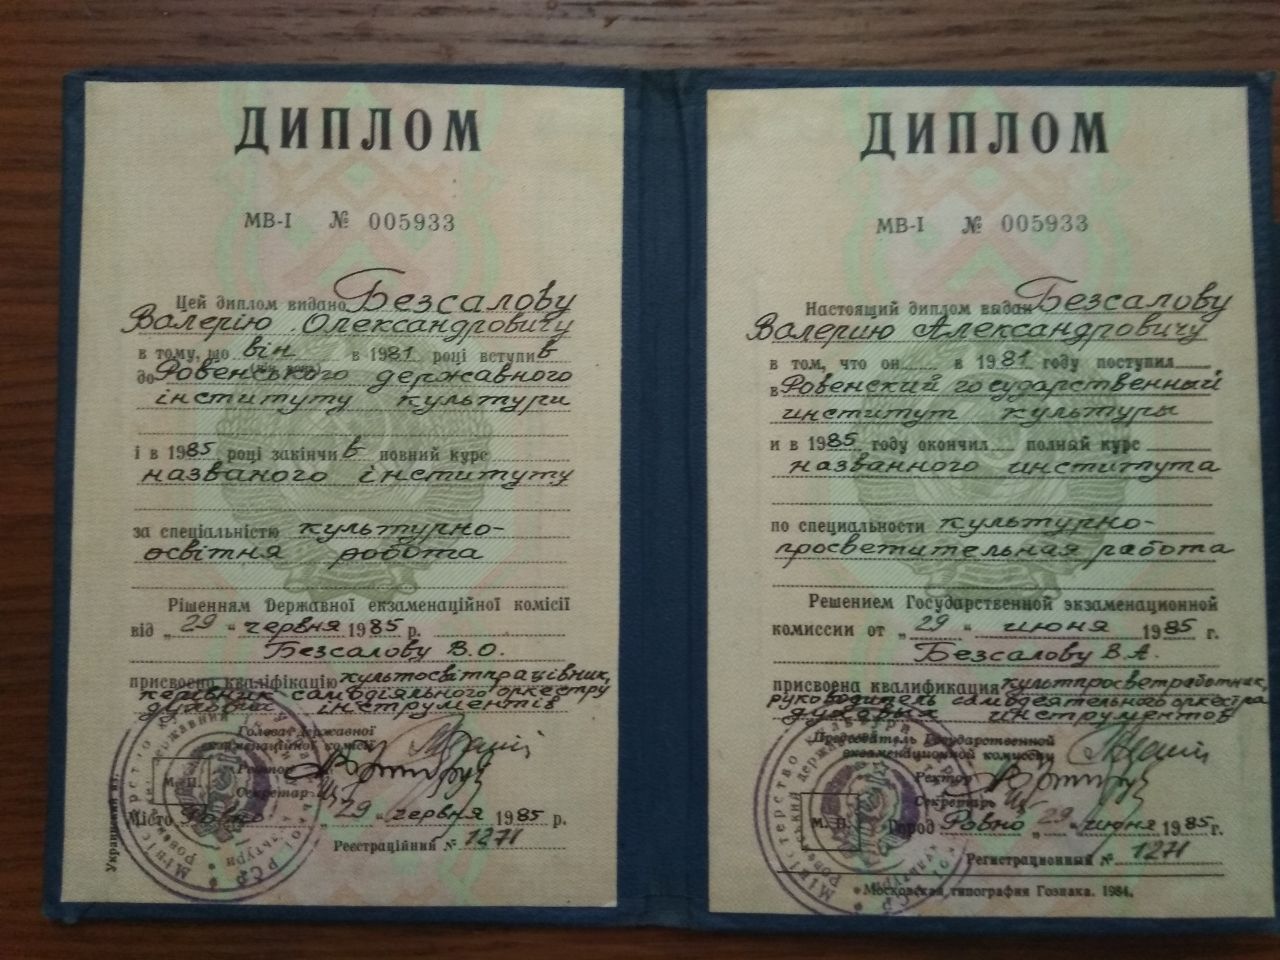 ДИПЛОМ
МВ-І № 005933
Цей диплом видано Безсалову
Валерію Олександровичу
в тому, що він в 1981 році вступив
до Ровенського державного
інституту культури
і в 1985 році закінчив повний курс
названого інституту
за спеціальністю культурно-
освітня робота
Рішенням Державної екзаменаційної комісії
від „29“ червня 1985 р.
Безсалову В.О.
присвоєна кваліфікацію культосвітпрацівник,
керівник самодіяльного оркестру
духових інструментів
Голова Державної
екзаменаційної комісії
Ректор
Секретар
М. П.
Місто Ровно „29“ червня 1985 р.
Реєстраційний № 1271
Український яз.
ДИПЛОМ
МВ-I № 005933
Настоящий диплом выдан Безсалову
Валерию Александровичу
в том, что он в 1981 году поступил
в Ровенский государственный
институт культуры
и в 1985 году окончил полный курс
названного института
по специальности культурно-
просветительная работа
Решением Государственной экзаменационной
комиссии от „29“ июня 1985 г.
Безсалову В.А.
присвоена квалификация культпросветработник,
руководитель самодеятельного оркестра
духовых инструментов
Председатель Государственной
экзаменационной комиссии
Ректор
Секретарь
М. П.
Город Ровно „29“ июня 1985 г.
Регистрационный № 1271
Московская типография Гознака. 1984.